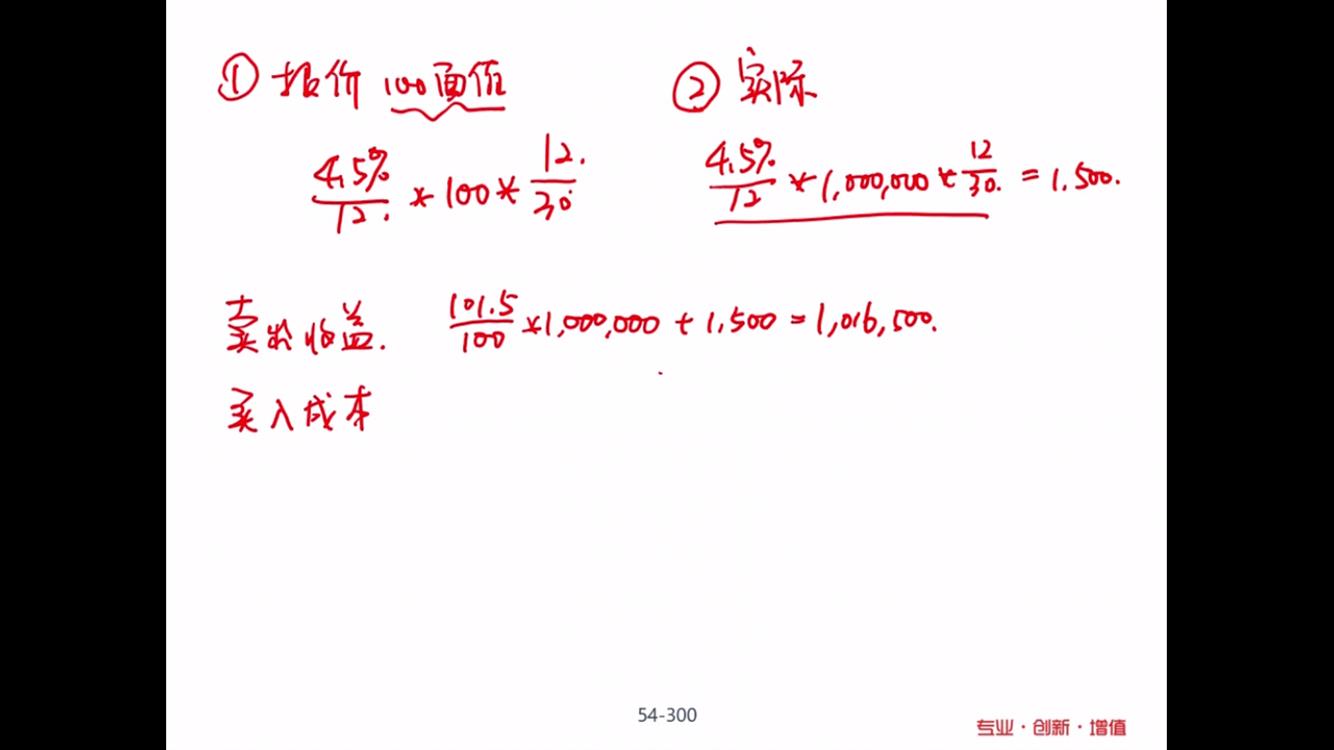 ① 报价 100面值
② 实际
4.5%/12 * 100 * 12/30
4.5%/12 * 1,000,000 * 12/30 = 1,500.
卖出收益. 101.5/100 * 1,000,000 + 1,500 = 1,016,500.
买入成本
54-300
专业·创新·增值